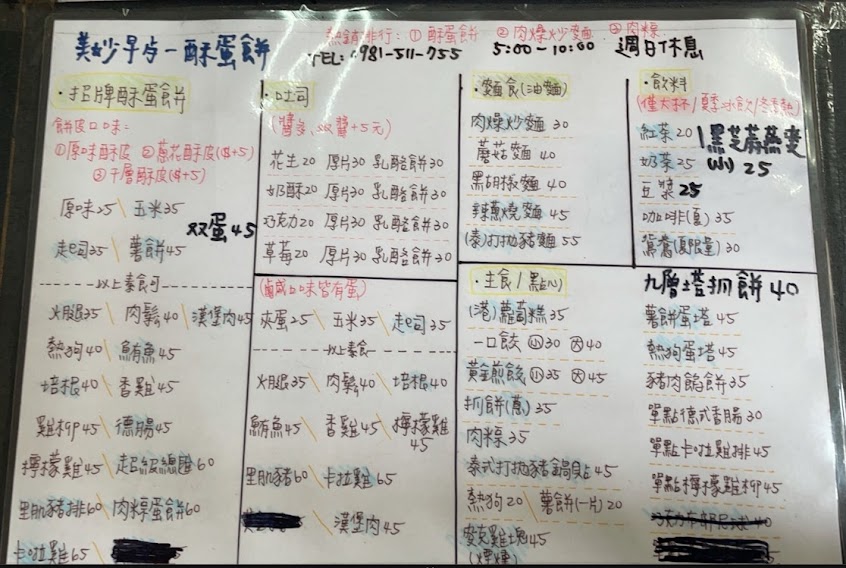 美妙早点－酥蛋餅
熱銷排行：① 酥蛋餅 ② 肉燥炒麵 ③ 肉粽
TEL: 0981-511-755 5:00~10:00 週日休息
·招牌酥蛋餅
餅皮口味：
①原味酥皮 ②蔥花酥皮($+5)
③千層酥皮($+5)
原味25 \ 玉米35
双蛋45
起司35 \ 薯餅45
以上素食可
火腿35 \ 肉鬆40 \ 漢堡肉45
熱狗40 \ 鮪魚45
培根40 \ 香雞45
雞柳45 \ 德腸45
檸檬雞45 \ 超級總匯60
里肌豬排60 \ 肉粽蛋餅60
卡啦雞65
·吐司
(醬多,双醬+5元)
花生20 厚片30 乳酪餅30
奶酥20 厚片30 乳酪餅30
巧克力20 厚片30 乳酪餅30
草莓20 厚片30 乳酪餅30
(鹹口味皆有蛋)
夾蛋25 \ 玉米35 \ 起司35
以上素食
火腿35 \ 肉鬆40 \ 培根40
鮪魚45 \ 香雞45 \ 檸檬雞45
里肌豬60 \ 卡拉雞65
漢堡肉45
·麵食(油麵)
肉燥炒麵 30
蘑菇麵 40
黑胡椒麵 40
辣蔥燒麵 45
(泰)打拋豬麵 55
·主食/點心
(港)蘿蔔糕35
一口餃 小30 大40
黃金煎餃 小35 大45
抓餅(蔥)35
肉粽35
泰式打拋豬鍋貼45
熱狗20 \ 薯餅(一片)20
麥克雞塊45
·飲料
(僅大杯/夏季冰飲/冬季熱)
紅茶20
黑芝麻燕麥
(小) 25
奶茶25
豆漿25
咖啡(夏)35
鴛鴦(夏限量)30
九層塔抓餅40
薯餅蛋塔45
熱狗蛋塔45
豬肉餡餅35
單點德式香腸30
單點卡啦雞排45
單點檸檬雞柳45